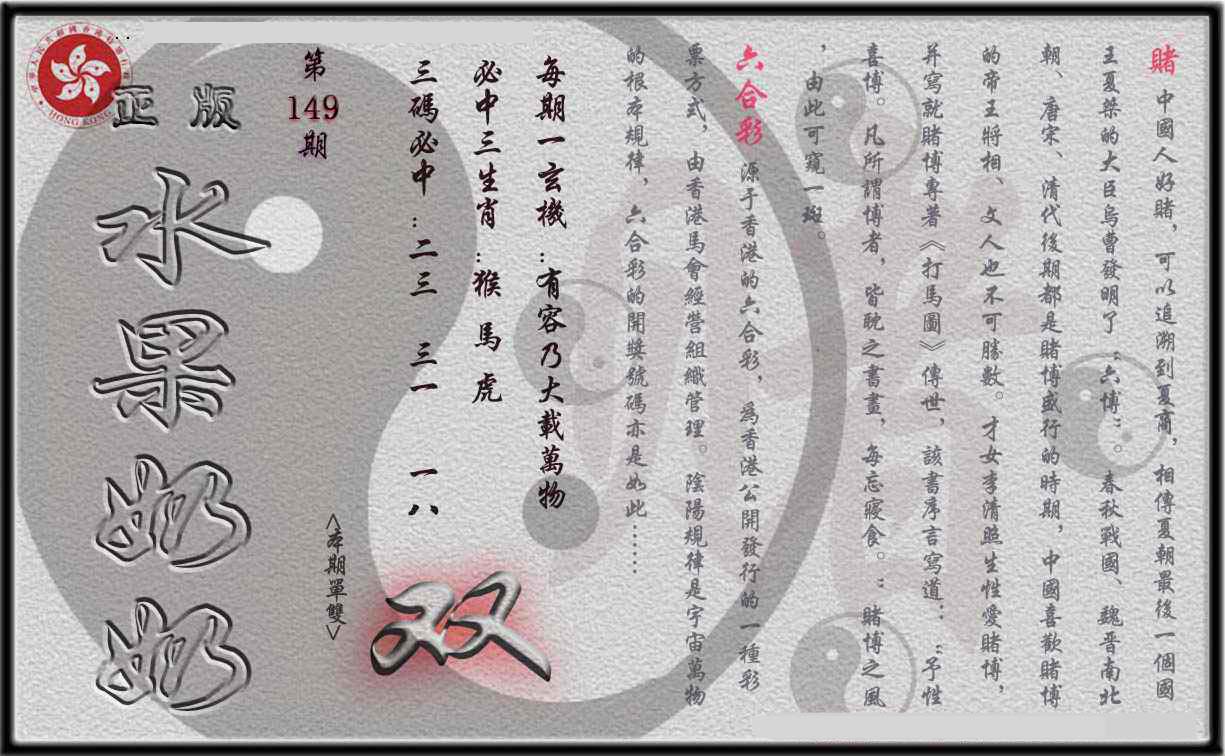 賭 中國人好賭，可以追溯到夏商，相傳夏朝最後一個國
王夏桀的大臣烏曹發明了“六博”。春秋戰國、魏晋南北
朝、唐宋、清代後期都是賭博盛行的時期，中國喜歡賭博
的帝王將相、文人也不可勝數。才女李清照生性愛賭博，
并寫就賭博專著《打馬圖》傳世，該書序言寫道：“予性
喜博。凡所謂博者，皆耽之書畫，每忘寢食。”賭博之風
，由此可窺一斑。
六合彩 源于香港的六合彩，爲香港公開發行的一種彩
票方式，由香港馬會經營組織管理。陰陽規律是宇宙萬物
的根本規律，六合彩的開獎號碼亦是如此……
每期一玄機：有容乃大載萬物
必中三生肖：猴 馬 虎
三碼必中：二三 三一 一八
第
149
期
<本期單雙>
双
正版
水果奶奶
HONG KONG